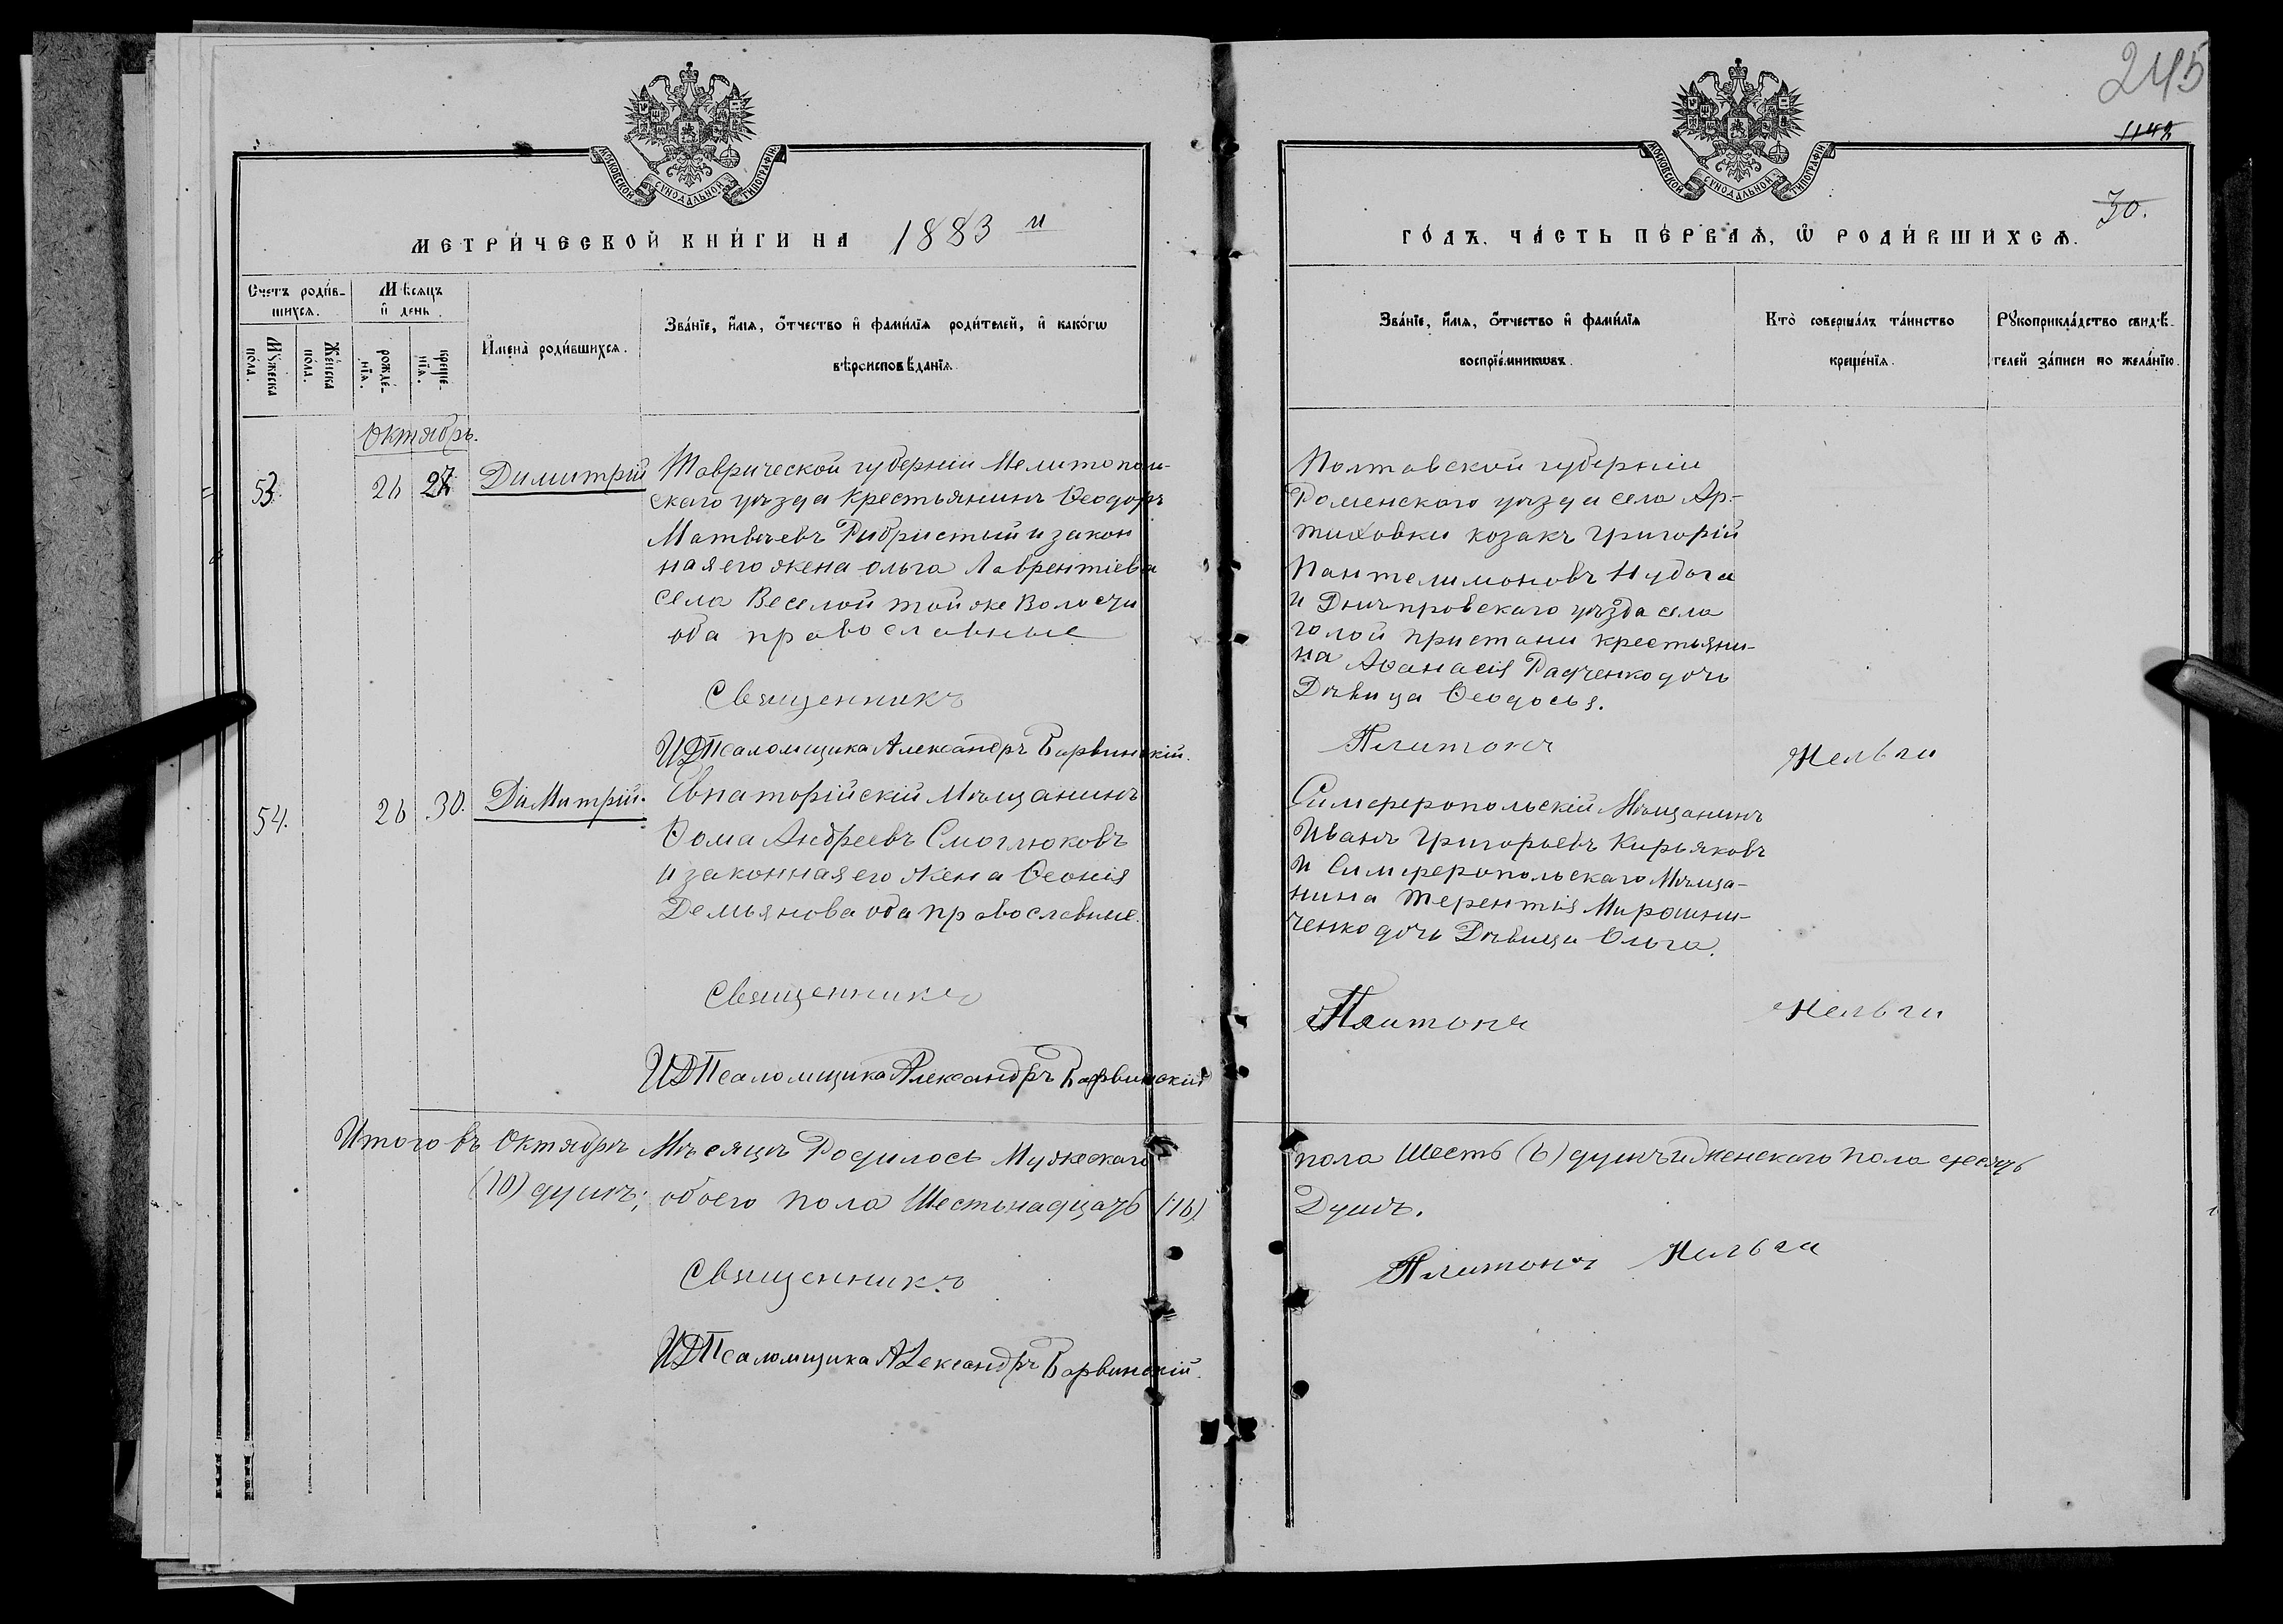 МОСКОВСКОЙ СѴНОДАЛЬНОЙ ТИПОГРАФІИ
МЕТРИ́ЧЕСКОЙ КНИ́ГИ НА 1883 й
Счетъ роди́в-
шихся.
Мѣсяцъ
и день
Му́жеска
по́ла.
Же́нска
по́ла.
рожде́-
нія.
креще-
нія.
Имена̀ роди́вшихся.
Зва́нїе, и́мя, о́тчество и фами́лїя роди́телей, и како́гѡ
вѣроисповѣ́данїя.
Октябрь.
53. 26 27 Димитрій
Таврической губерніи Мелитополь-
скаго уѣзда крестьянинъ Ѳеодоръ
Матвѣевъ Рибристый и закон
ная его жена Ольга Лаврентіева
села Веселой той же Волости
оба православные
Священникъ
ИД Псаломщика Александръ Барвинскій.
54. 26 30. Димитрій.
Евпаторійскій Мѣщанинъ
Ѳома Андреевъ Смоглюковъ
и законная его жена Ѳеонія
Демьянова оба православные.
Священникъ
ИД Псаломщика Александръ Барвинскій
Итого въ Октябрѣ Мѣсяцѣ Родилось Мужескаго
(10) душъ; обоего пола Шестьнадцать (16)
Священникъ
ИД Псаломщика Александръ Барвинскій.
245
1148
30.
МОСКОВСКОЙ СѴНОДАЛЬНОЙ ТИПОГРАФІИ
ГО́ДЪ. ЧА́СТЬ ПЕ́РВАЯ, Ѡ РОДИ́ВШИХСЯ.
Зва́нїе, и́мя, о́тчество и фами́лїя
воспрїе́мникѡвъ.
Кто̀ соверша́лъ та́инство
креще́нїя.
Рꙋкоприкла́дство свидѣ́-
телей за́писи по жела́нїю.
Полтавской губерніи
Роменскаго уѣзда села Ар-
тиховки козакъ Григорій
Пантелимоновъ Нудога
и Днѣпровскаго уѣзда села
голой пристани крестьяни-
на Аѳанасія Радченко дочь
Дѣвица Ѳеодосья.
Платонъ Мельга
Симферопольскій Мѣщанинъ
Иванъ Григорьевъ Кирьяковъ
и Симферопольскаго Мѣща-
нина Терентія Мирошни-
ченко дочь Дѣвица Ольга.
Платонъ Мельга
пола Шесть (6) душъ и женскаго пола десять
Душъ.
Платонъ Мельга